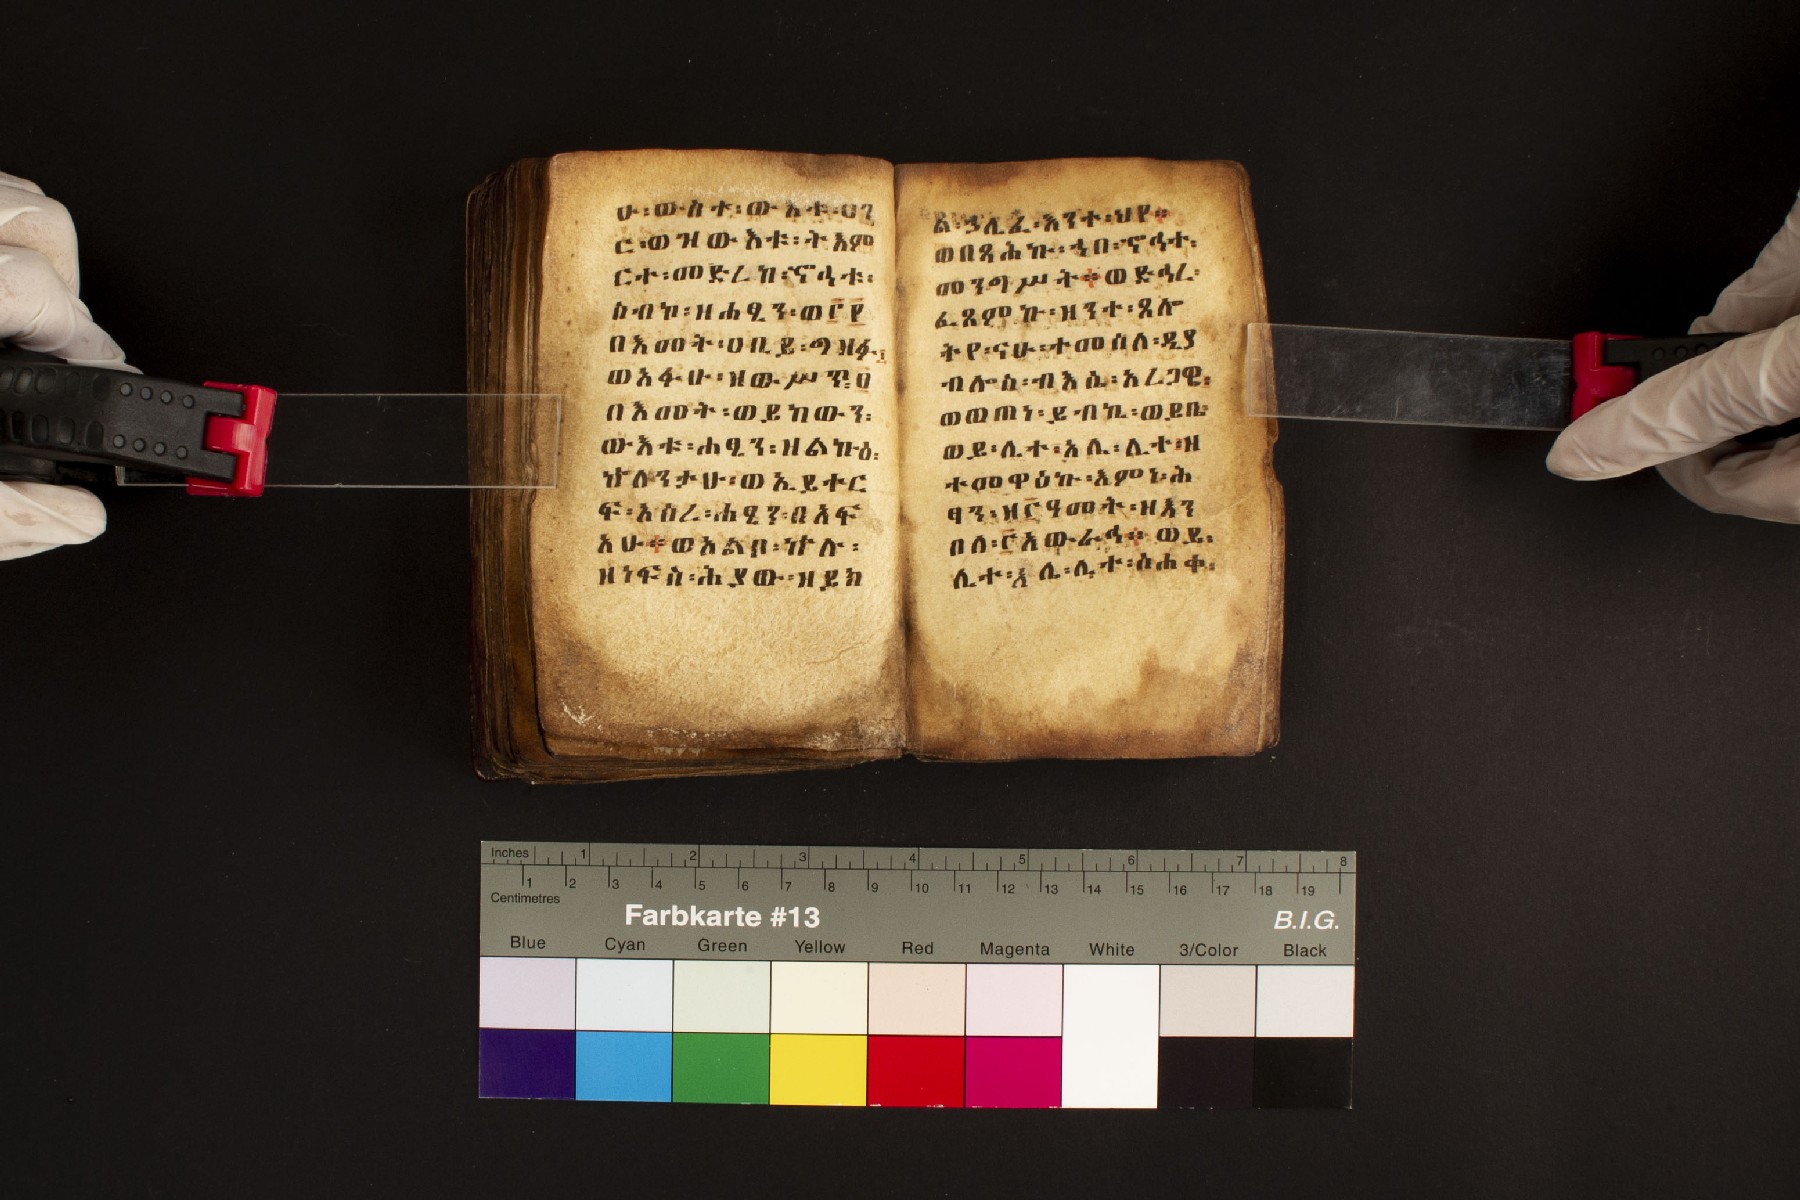 ሁ፡ውስተ፡ውእቱ፡ሀገ
ር፡ወዝውእቱ፡ትእም
ርተ፡መድረከ፡ኖኅቱ፡
ስብኮ፡ዘሐፂን፡ወ፲፪
በእመት፡ዐቢይ፡ግዝፉ፤
ወአፉሁ፡ዝው፡
በእመት፡ወይከውን፡
ውእቱ፡ሐፂን፡ዘልኩዕ፡
ዅለንታሁ፡ወኢይተር
ፍ፡አስረ፡ሐፂን፡በአፍ
አሁ፡፡ወአልቦ፡ዅሉ፡
ዘነፍስ፡ሕያው፡ዘይክ
ል፡ኃሊፈ፡እንተ፡ህየ፡፡
ወበጻሕኩ፡ኀበ፡ኖኅተ፡
መንግሥት፡፡ወድኅረ፡
ፈጸምኩ፡ዘንተ፡ጸሎ
ትየ፡ናሁ፡ተመሰለ፡ዲያ
ብሎስ፡ብእሴ፡አረጋዊ፡
ወወጠነ፡ይብኪ፡ወይቤ፡
ወይ፡ሊተ፡አሌ፡ሊተ፡ዘ
ተመዋዕኩ፡እምኔ፡ሕ
ፃን፡ዘ፲ዓመት፡ዘእን
በለ፡፲አውራኅ፡፡ወይ፡
ሊተ፡አሌ፡ሊተ፡ስሐቀ፡
Inches 1 2 3 4 5 6 7 8
1 2 3 4 5 6 7 8 9 10 11 12 13 14 15 16 17 18 19
Centimetres
Farbkarte #13 B.I.G.
Blue Cyan Green Yellow Red Magenta White 3/Color Black